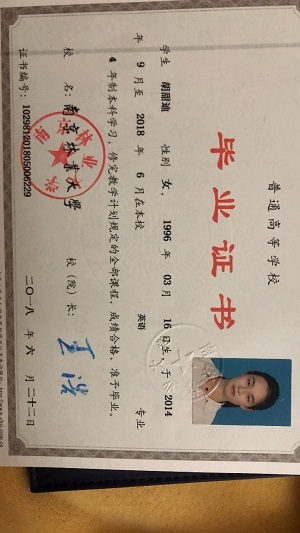 普通高等学校
毕业证书
学生 胡甜迪 性别 女，1996 年 03 月 16 日生，于 2014
年 9 月至 2018 年 6 月在本校 英语 专业
4 年制本科学习，修完教学计划规定的全部课程，成绩合格，准予毕业。
校 名：南京林业大学 校（院）长：王浩
证书编号：102981201805006229 二〇一八 年 六 月 二十二日